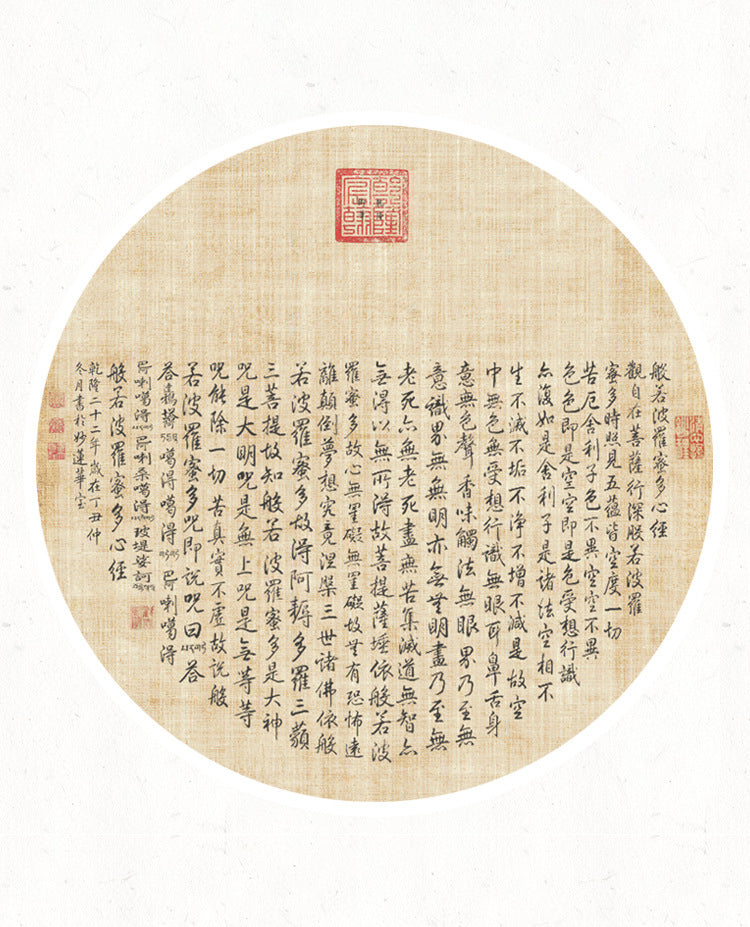 乾隆宸翰
般若波羅蜜多心經
觀自在菩薩行深般若波羅
蜜多時照見五蘊皆空度一切
苦厄舍利子色不異空空不異
色色即是空空即是色受想行識
亦復如是舍利子是諸法空相不
生不滅不垢不淨不增不減是故空
中無色無受想行識無眼耳鼻舌身
意無色聲香味觸法無眼界乃至無
意識界無無明亦無無明盡乃至無
老死亦無老死盡無苦集滅道無智亦
無得以無所得故菩提薩埵依般若波
羅蜜多故心無罣礙無罣礙故無有恐怖遠
離顛倒夢想究竟涅槃三世諸佛依般
若波羅蜜多故得阿耨多羅三藐
三菩提故知般若波羅蜜多是大神
咒是大明咒是無上咒是無等等
咒能除一切苦真實不虛故說般
若波羅蜜多咒即說咒曰 答
噶得噶得 喇噶得
喇噶得 喇桑噶得 玻堤娑訶
般若波羅蜜多心經
乾隆二十二年歲在丁丑仲
冬月書於妙蓮華室